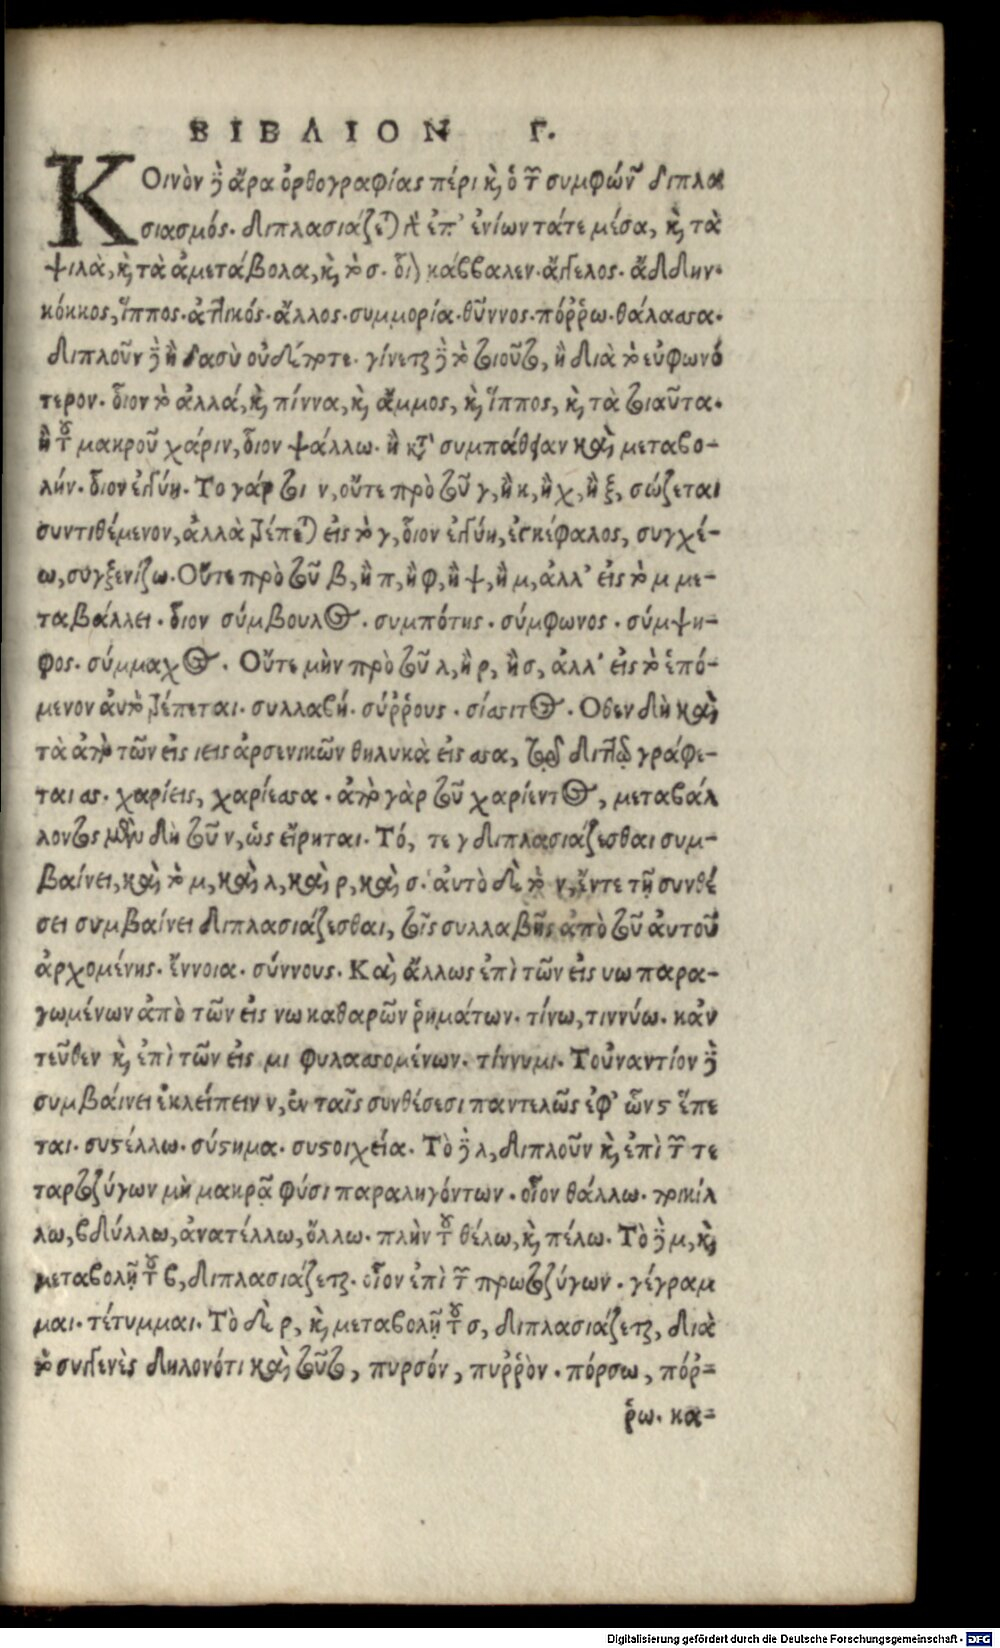 ΒΙΒΛΙΟΝ Γ.
ΚΟινὸν δὲ ἄρα ὀρθογραφίας πέρι καὶ ὁ τῶν συμφώνων διπλα
σιασμός. διπλασιάζεται δὲ ἐπ' ἐνίων τάτε μέσα, καὶ τὰ
ψιλὰ, καὶ τὰ ἀμετάβολα, καὶ τὸ σ. οἷον κάββαλεν. ἄγγελος. ἄδδην.
κόκκος, ἵππος. ἀττικός. ἄλλος. συμμορία. θύννος. πόῤῥω. θάλασσα.
διπλοῦν δὲ ἢ δασὺ οὐδέποτε. γίνεται δὲ τὸ τοιοῦτο, ἢ διὰ τὸ εὐφωνό
τερον. οἷον τὸ ἀλλά, καὶ πίννα, καὶ ἄμμος, καὶ ἵππος, καὶ τὰ τοιαῦτα.
ἢ τοῦ μακροῦ χάριν, οἷον ψάλλω. ἢ κατὰ συμπάθειαν καὶ μεταβο-
λήν. οἷον ἐγγύη. Το γάρ τοι ν, οὔτε πρὸ τοῦ γ, ἢ κ, ἢ χ, ἢ ξ, σώζεται
συντιθέμενον, ἀλλὰ τρέπεται εἰς τὸ γ, οἷον ἐγγύη, ἐγκέφαλος, συγχέ-
ω, συγξενίζω. Οὔτε πρὸ τοῦ β, ἢ π, ἢ φ, ἢ ψ, ἢ μ, ἀλλ' εἰς τὸ μ με-
ταβάλλει. οἷον σύμβουλος. συμπότης. σύμφωνος. σύμψη-
φος. σύμμαχος. Οὔτε μὴν πρὸ τοῦ λ, ἢ ρ, ἢ σ, ἀλλ' εἰς τὸ ἑπό-
μενον αὐτὸ τρέπεται. συλλαβή. σύῤῥους. σίσσιτος. Οθεν δὴ καὶ
τὰ ἀπὸ τῶν εἰς ιεις ἀρσενικῶν θηλυκὰ εἰς σσα, τῷ διπλῷ γράφε-
ται σσ. χαρίεις, χαρίεσσα. ἀπὸ γὰρ τοῦ χαρίεντος, μεταβάλ
λοντος μὲν δὴ τοῦ ν, ὡς εἴρηται. Τό, τε γ διπλασιάζεσθαι συμ-
βαίνει, καὶ τὸ μ, καὶ λ, καὶ ρ, καὶ σ. αὐτὸ δὲ τὸ ν, ἔν τε τῇ συνθέ
σει συμβαίνει διπλασιάζεσθαι, τοῖς συλλαβῆς ἀπὸ τοῦ αὐτοῦ
ἀρχομένης. ἔννοια. σύννους. Καὶ ἄλλως ἐπὶ τῶν εἰς υω παρα-
γωμένων ἀπὸ τῶν εἰς νω καθαρῶν ῥημάτων. τίνω, τιννύω. κἀν
τεῦθεν καὶ ἐπὶ τῶν εἰς μι φυλασσομένων. τίννυμι. Τοὐναντίον δὲ
συμβαίνει ἐκλείπειν ν, ἐν ταῖς συνθέσεσι παντελῶς ἐφ' ὧν ϛ ἕπε
ται. συϛέλλω. σύϛημα. συϛοιχεία. Τὸ δὲ λ, διπλοῦν καὶ ἐπὶ τῶν τε
ταρτοζύγων μὴ μακρᾷ φύσι παραληγόντων. οἷον θάλλω. τρικίλ
λω, βδύλλω, ἀνατέλλω, ὄλλω. πλὴν τοῦ θέλω, καὶ πέλω. Τὸ δὲ μ, καὶ
μεταβολῇ τοῦ β, διπλασιάζεται. οἷον ἐπὶ τῶν πρωτοζύγων. γέγραμ
μαι. τέτυμμαι. Τὸ δὲ ρ, καὶ μεταβολῇ τοῦ σ, διπλασιάζεται, διὰ
τὸ συγγενὲς δηλονότι καὶ τοῦτο, πυρσόν, πυῤῥὸν. πόρσω, πόρ-
ῥω. κα-